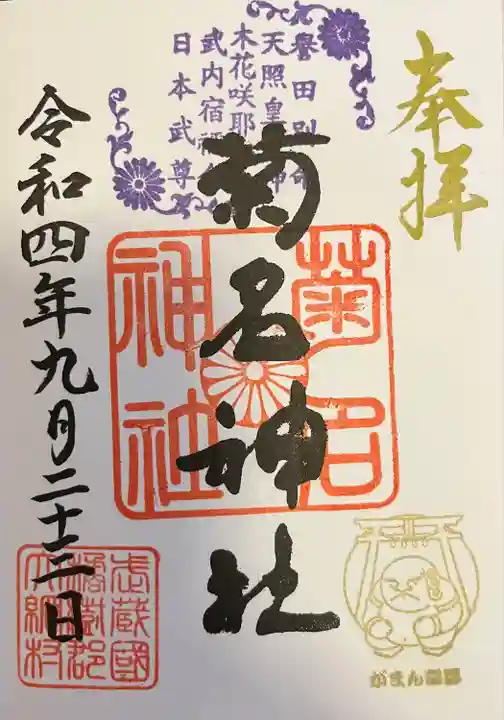 奉拝
譽田別命
天照皇神
木花咲耶
武内宿禰命
日本武尊
菊名神社
菊名
神社
令和四年九月二十三日
武蔵國
橘樹郡
大綱村
がまん